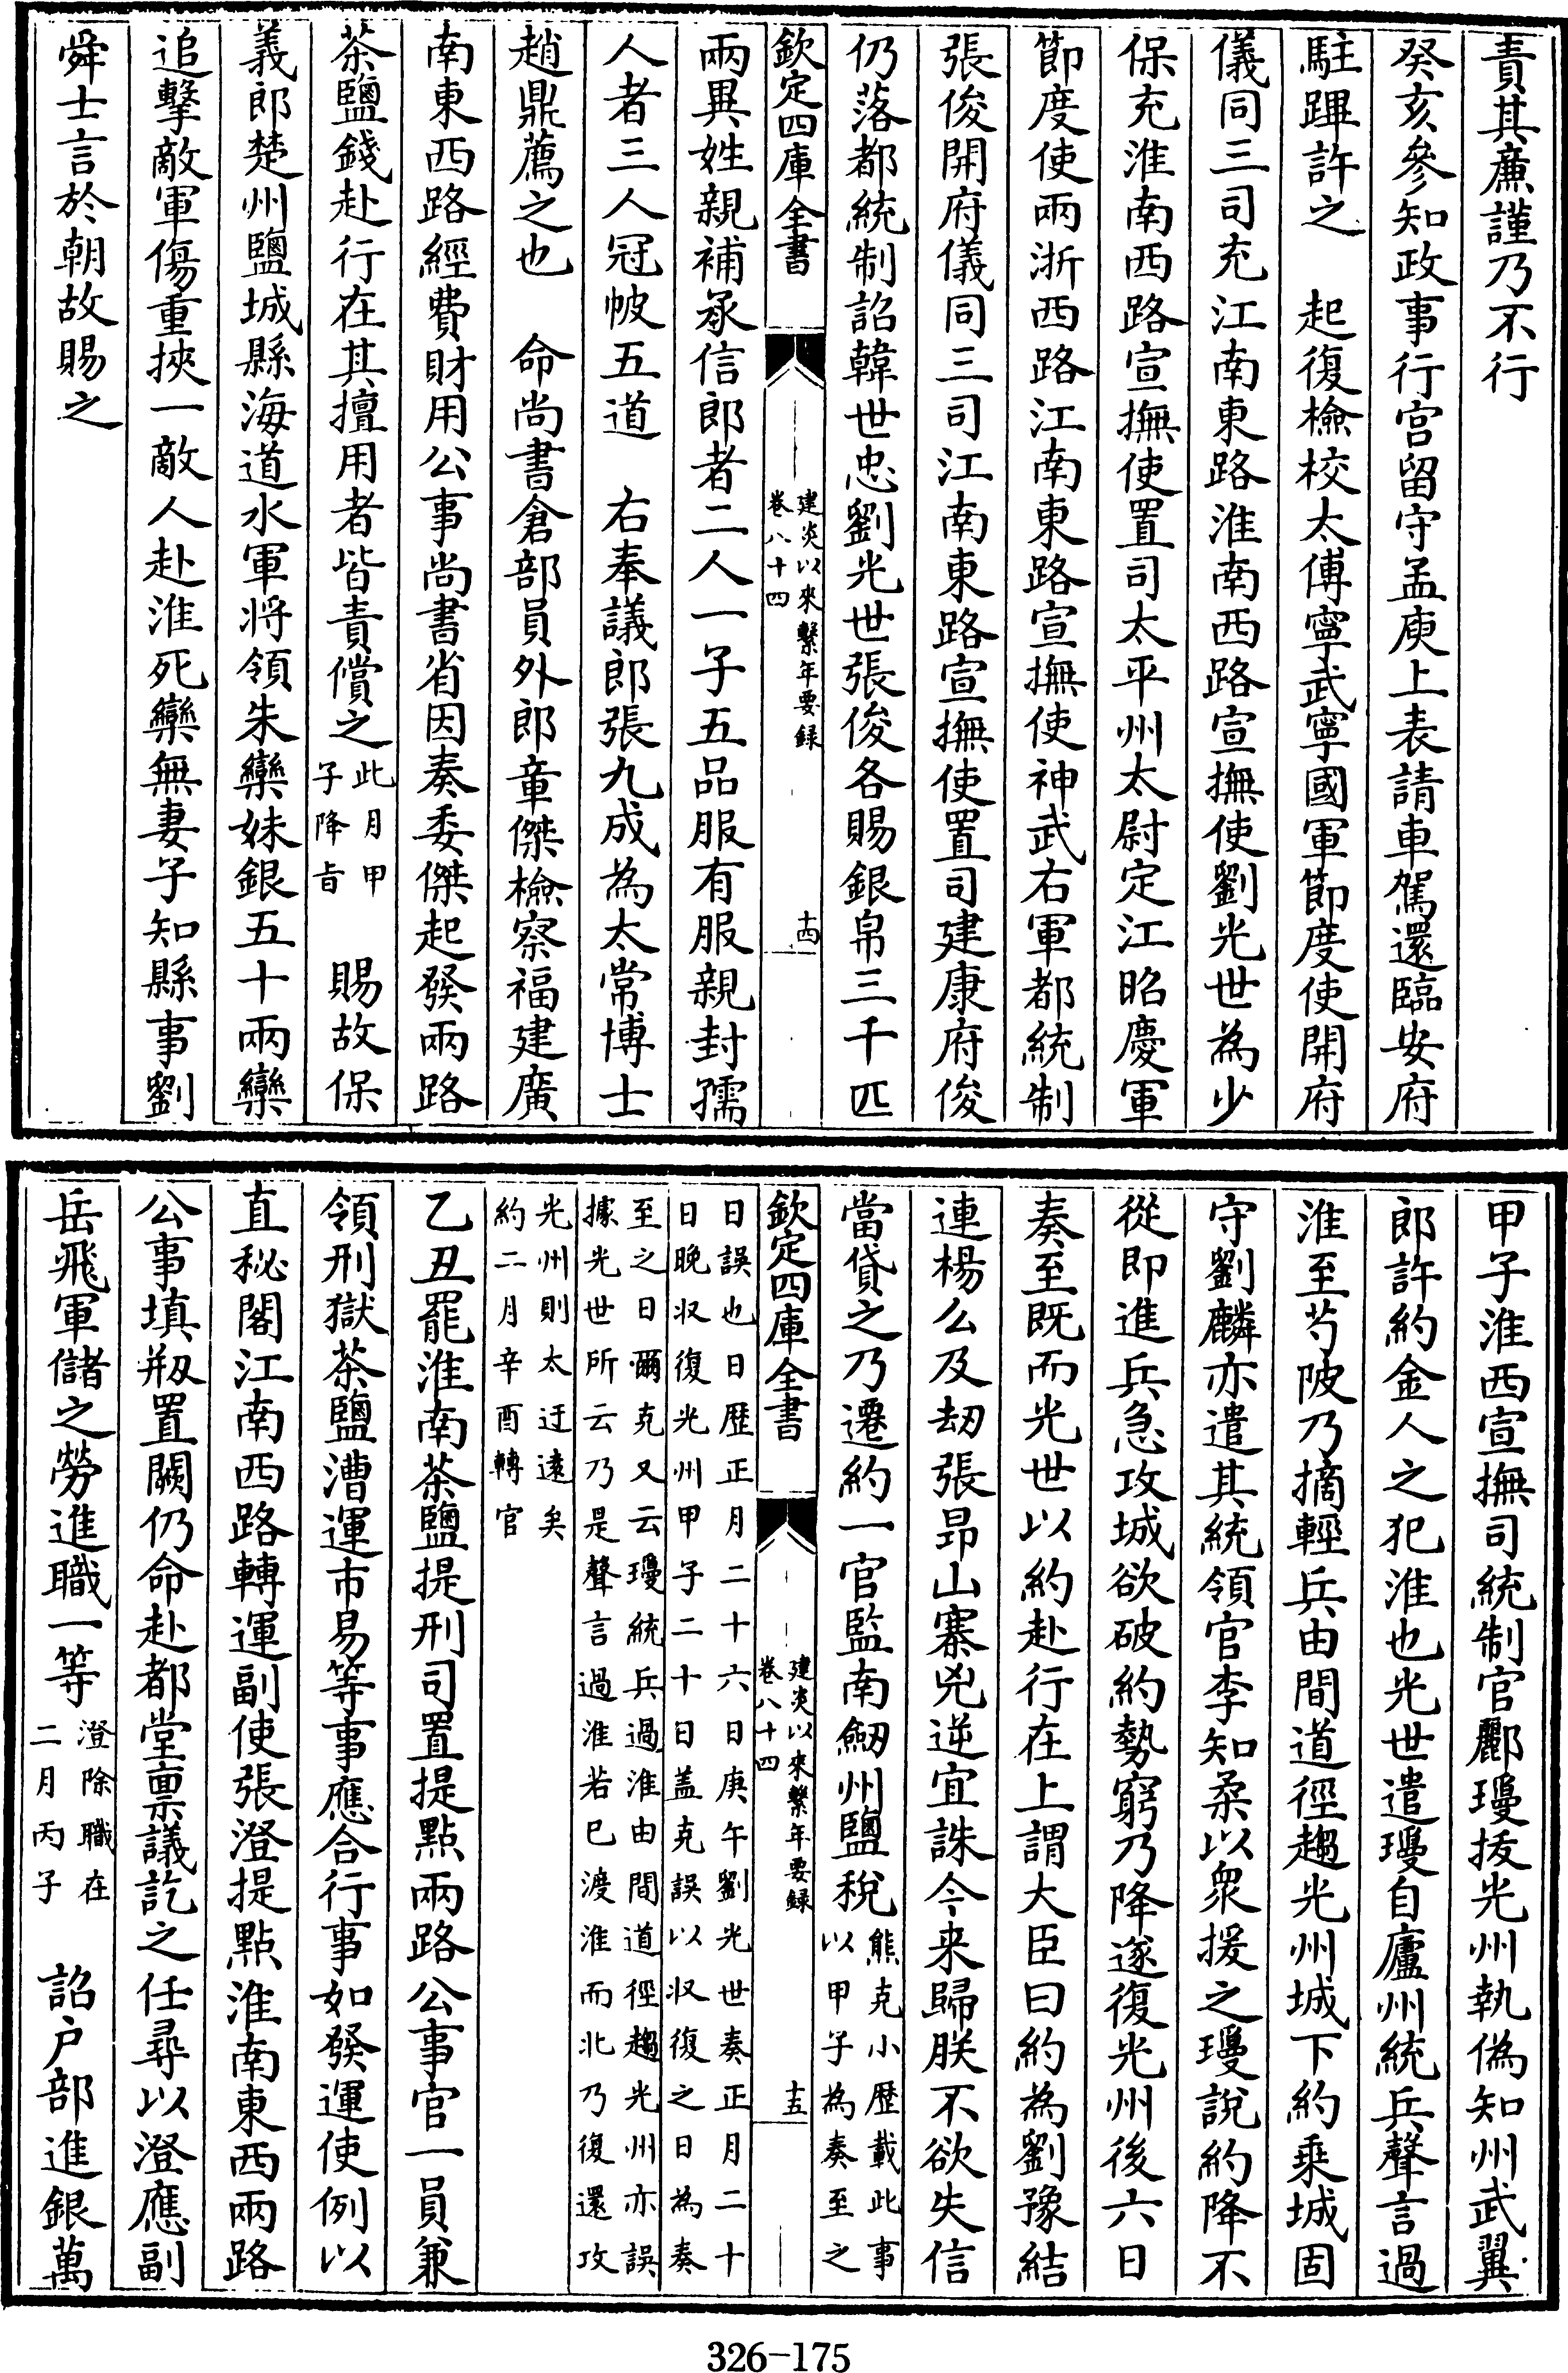 責其廉謹乃不行
癸亥參知政事行宫留守孟庾上表請車駕還臨安府
駐蹕許之　起復檢校太傅寧武寧國軍節度使開府
儀同三司充江南東路淮南西路宣撫使劉光世為少
保充淮南西路宣撫使置司太平州太尉定江昭慶軍
節度使兩浙西路江南東路宣撫使神武右軍都統制
張俊開府儀同三司江南東路宣撫使置司建康府俊
仍落都統制詔韓世忠劉光世張俊各賜銀帛三千匹
欽定四庫全書
建炎以來繫年要録
卷八十四
十四
兩異姓親補承信郎者二人一子五品服有服親封孺
人者三人冠帔五道　右奉議郎張九成為太常博士
趙鼎薦之也　命尚書倉部員外郎章傑檢察福建廣
南東西路經費財用公事尚書省因奏委傑起發兩路
茶鹽錢赴行在其擅用者皆責償之
此月甲
子降旨
賜故保
義郎楚州鹽城縣海道水軍將領朱欒妹銀五十兩欒
追擊敵軍傷重挾一敵人赴淮死欒無妻子知縣事劉
舜士言於朝故賜之
甲子淮西宣撫司統制官酈瓊拔光州執偽知州武翼
郎許約金人之犯淮也光世遣瓊自廬州統兵聲言過
淮至芍陂乃摘輕兵由間道徑趨光州城下約乘城固
守劉麟亦遣其統領官李知柔以衆援之瓊說約降不
從即進兵急攻城欲破約勢窮乃降遂復光州後六日
奏至既而光世以約赴行在上謂大臣曰約為劉豫結
連楊么及刼張昂山寨兇逆宜誅今来歸朕不欲失信
當貸之乃遷約一官監南劔州鹽稅
熊克小歴載此事
以甲子為奏至之
欽定四庫全書
建炎以來繫年要録
卷八十四
十五
日誤也日歴正月二十六日庚午劉光世奏正月二十
日晚収復光州甲子二十日蓋克誤以収復之日為奏
至之日爾克又云瓊統兵過淮由間道徑趨光州亦誤
據光世所云乃是聲言過淮若已渡淮而北乃復還攻
光州則太迂遠矣
約二月辛酉轉官
乙丑罷淮南茶鹽提刑司置提點兩路公事官一員兼
領刑獄茶鹽漕運市易等事應合行事如發運使例以
直秘閣江南西路轉運副使張澄提點淮南東西兩路
公事填剏置闕仍命赴都堂禀議訖之任尋以澄應副
岳飛軍儲之勞進職一等
澄除職在
二月丙子
詔户部進銀萬
326-175